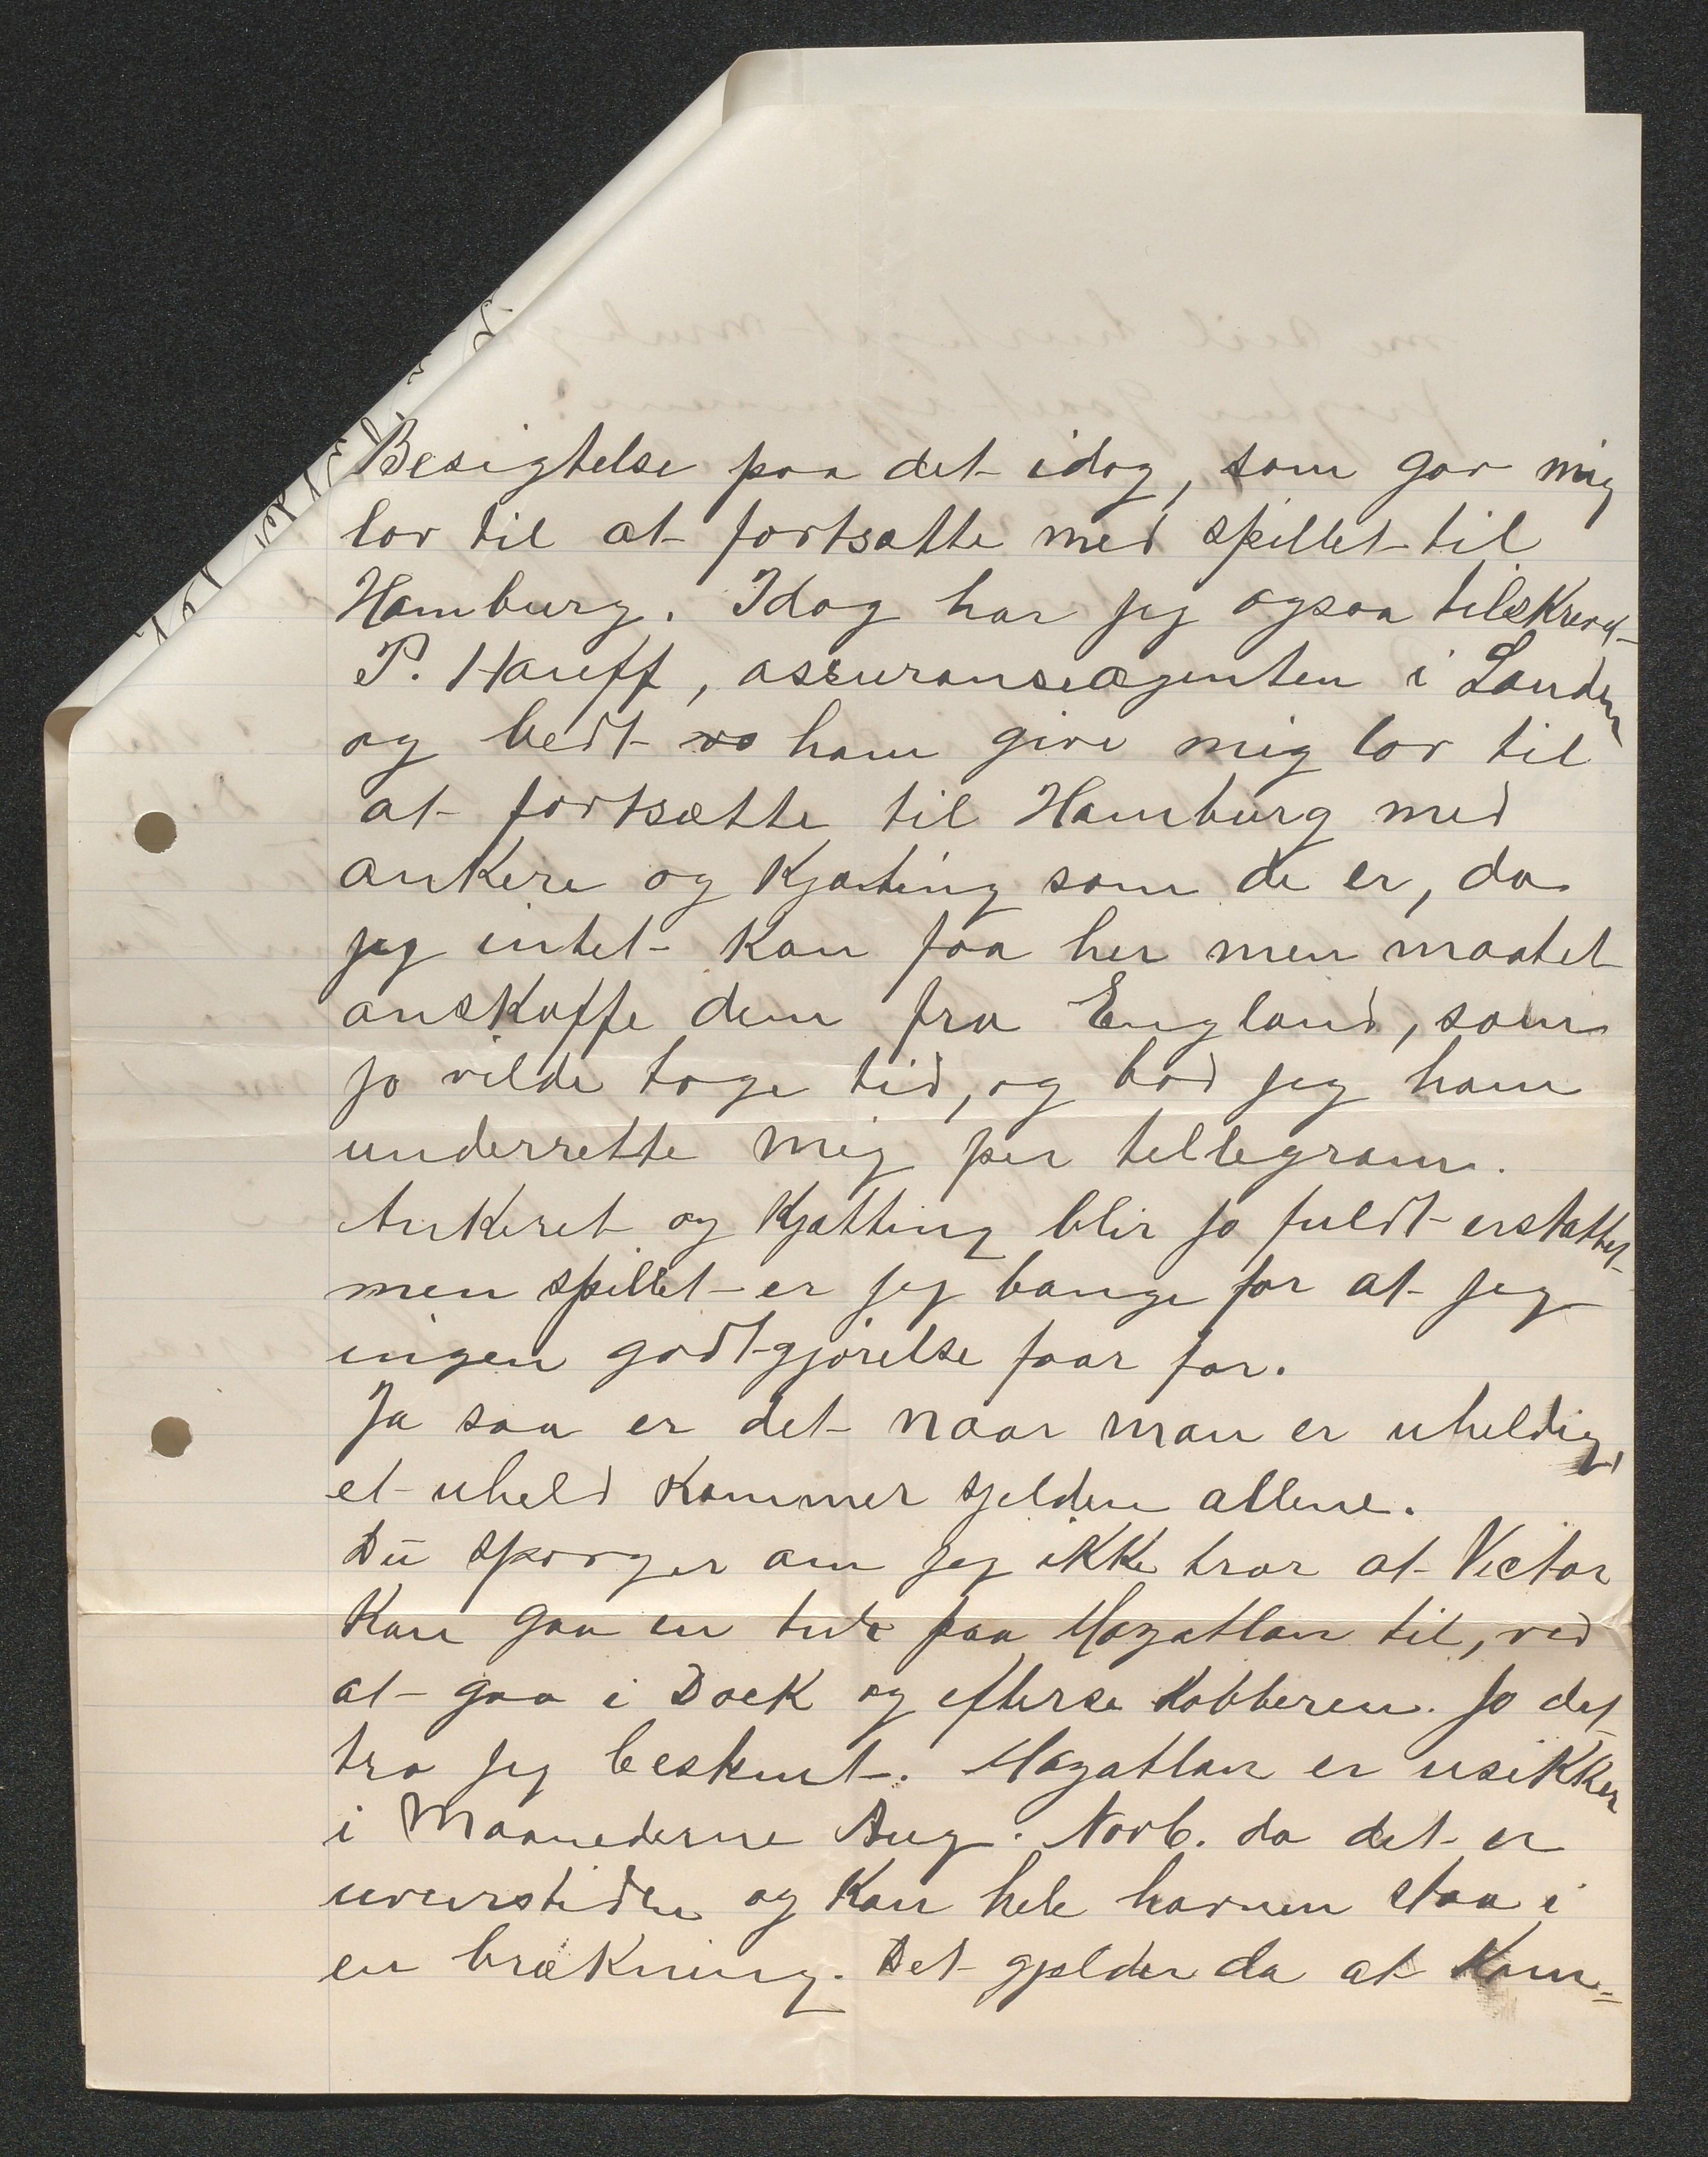 Besigtelse paa det idag, som gar mig
lov til at fortsætte med spillet til
Hamburg. Idag har jeg ogsaa tilskrevet
P. Hauff, assuranseagenten i London
og bedt ham give mig lov til
at fortsætte til Hamburg med
ankere og Kjæting som de er, da
jeg intet kan faa her men maatet
anskaffe dem fra England, som
jo vilde tage tid, og bad jeg ham
underrette mig per tellegram.
Ankeret og Kjætting blir jo fuldt erstattet
men spillet er jeg bange for at jeg
ingen godtgjørelse faar for.
Ja saa er det naar man er uheldig,
et uheld kommer sjelden allene.
Du spørger om jeg ikke tror at Victor
kan gaa en tur paa Mazatlan til, ved
at gaa i Dock og efterse Kobberen. Jo det
tro jeg bestemt. Mazatlan er usikker
i Maanederne Aug. Novb. da det er
uveirstiden og kan hele havnen staa i
en brækning. Det gjelder da at kom=